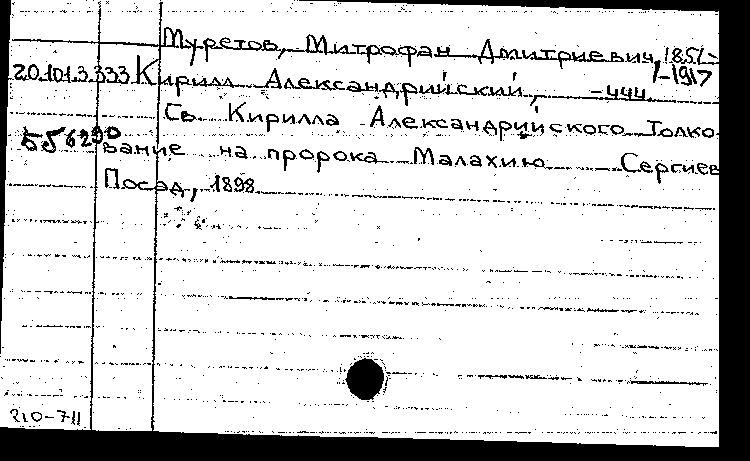 Муретов, Митрофан Дмитриевич, 1851-
/-1917
20.101.3.333 Кирилл Александрийский, -444.
Св. Кирилла Александрийского Толко-
556290 вание на пророка Малахию Сергиев
Посад, 1898.
210-711